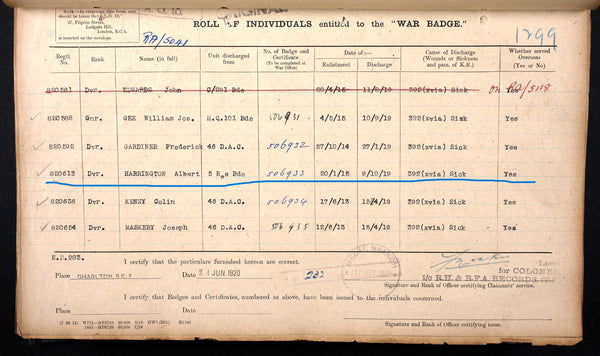 N.B.—When referring to this, forwarding,
should be taken
27, Pilgrim Street,
Ludgate Hill,
London, E.C.4
is inserted on the envelope.
ROLL OF INDIVIDUALS entitled to the "WAR BADGE."
RA/5041
1299
Regtl. No. Rank Name (in full) Unit discharged from No. of Badge and Certificate (To be completed at War Office) Date of :— Enlistment Discharge Cause of Discharge (Wounds or Sickness and para. of K.R.) Whether served Overseas (Yes or No)
820561 Dvr. EDWARDS John C/291 Bde 20/4/15 11/9/19 392(xvia) Sick on RA/5118 Yes
820588 Gnr. GEE William Jos. H.Q.101 Bde 506931 4/5/15 10/9/19 392(xvia) Sick Yes
820592 Dvr. GARDINER Frederick 46 D.A.C. 506932 27/10/14 27/1/19 392(xvia) Sick Yes
820613 Dvr. HARRINGTON Albert 5 Res Bde 506933 20/1/15 9/10/19 392(xvia) Sick Yes
820636 Dvr. KENSY Colin 46 D.A.C. 506934 17/6/13 15/4/19 392(xvia) Sick Yes
820654 Dvr. MASKERY Joseph 46 D.A.C. 506935 12/6/13 15/4/19 392(xvia) Sick Yes
E.D.283.
I certify that the particulars furnished hereon are correct.
Place CHARLTON, S.E.7 Date 24 JUN 1920
for COLONEL
i/c R.H. & R.F.A RECORDS
Signature and Rank of Officer certifying Claimants' service.
I certify that Badges and Certificates, numbered as above, have been issued to the individuals concerned.
Place Date
Signature and Rank of Officer certifying issue.